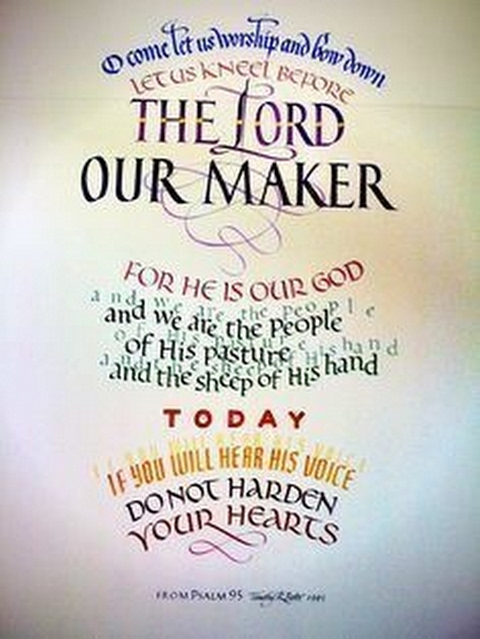 O come let us worship and bow down
LET US KNEEL BEFORE
THE LORD
OUR MAKER
FOR HE IS OUR GOD
and we are the people
and we are the People
of His pasture
of His pasture
and the sheep of His hand
and the sheep of His hand
TODAY
IF YOU WILL HEAR HIS VOICE
IF YOU WILL HEAR HIS VOICE
DO NOT HARDEN
YOUR HEARTS
FROM PSALM 95 Timothy R.